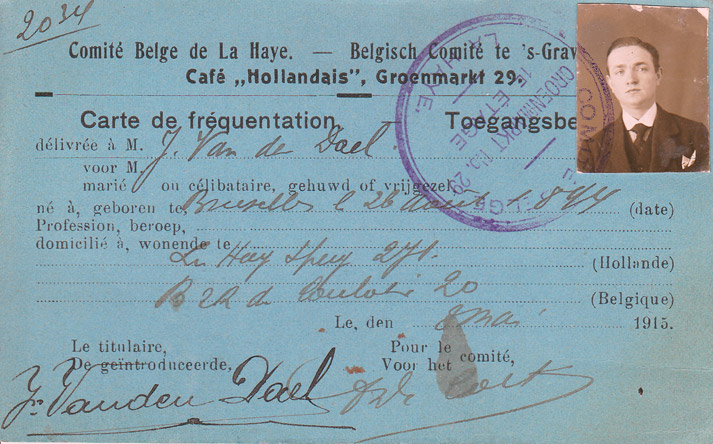 2034
Comité Belge de La Haye. — Belgisch Comité te 's-Grav
Café „Hollandais", Groenmarkt 29.
Carte de fréquentation Toegangsbe
délivrée à M. J. Van den Dael
voor M.
marié ou célibataire, gehuwd of vrijgezel
né à, geboren te Bruxelles le 26 Août 1894 (date)
Profession, beroep,
domicilié à, wonende te
La Hay Spuy 271 (Hollande)
20 (Belgique)
Le, den 8 mai 1915.
Le titulaire, Pour le comité,
De geïntroduceerde, Voor het
J. Vanden Dael
COMITÉ BELGE
LA HAYE.
GROENMARKT No. 29
1E ETAGE